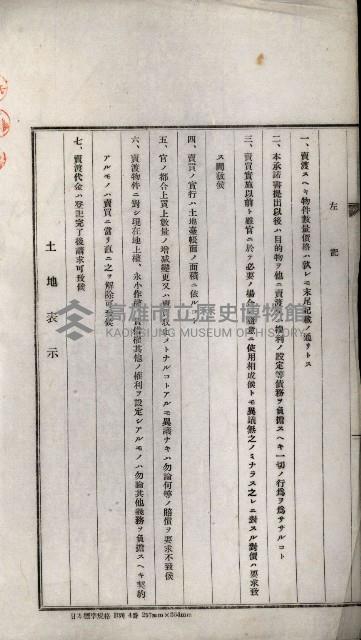 左記
一、賣渡スヘキ物件數量價格ハ孰レモ末尾記載ノ通リトス
二、本承諾書提出以後ハ目的物ヲ他ニ賣渡 權利ノ設定等債務ヲ負擔スヘキ一切ノ行爲ヲ爲ササルコト
三、賣買實施以前ト雖官ニ於テ必要ノ場合 隨意ニ使用相成候トモ異議無之ノミナラス之レニ對スル對價ハ要求致
ス間敷候
四、賣買ノ實行ハ土地臺帳面ノ面積ニ依ル
五、官ノ都合上買上數量ノ增減變更又ハ 取 メトナルコトアルモ異議ナキハ勿論何等ノ賠償ヲ要求不致候
六、賣渡物件ニ對シ現在地上權、永小作權 借權其他ノ權利ヲ設定シアルモノハ勿論其他義務ヲ負擔スヘキ契約
アルモノハ賣買ニ當リ直ニ之ヲ解除可致候
七、賣渡代金ハ登記完了後請求可致候
土地表示
高雄市立歷史博物館
KAOHSIUNG MUSEUM OF HISTORY
日本標準規格 B列 4番 257mm×364mm